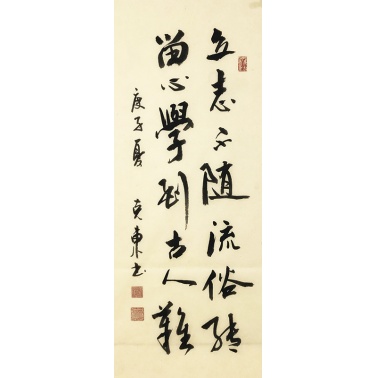 立志不随流俗转
留心學到古人難
庚子夏 克東书